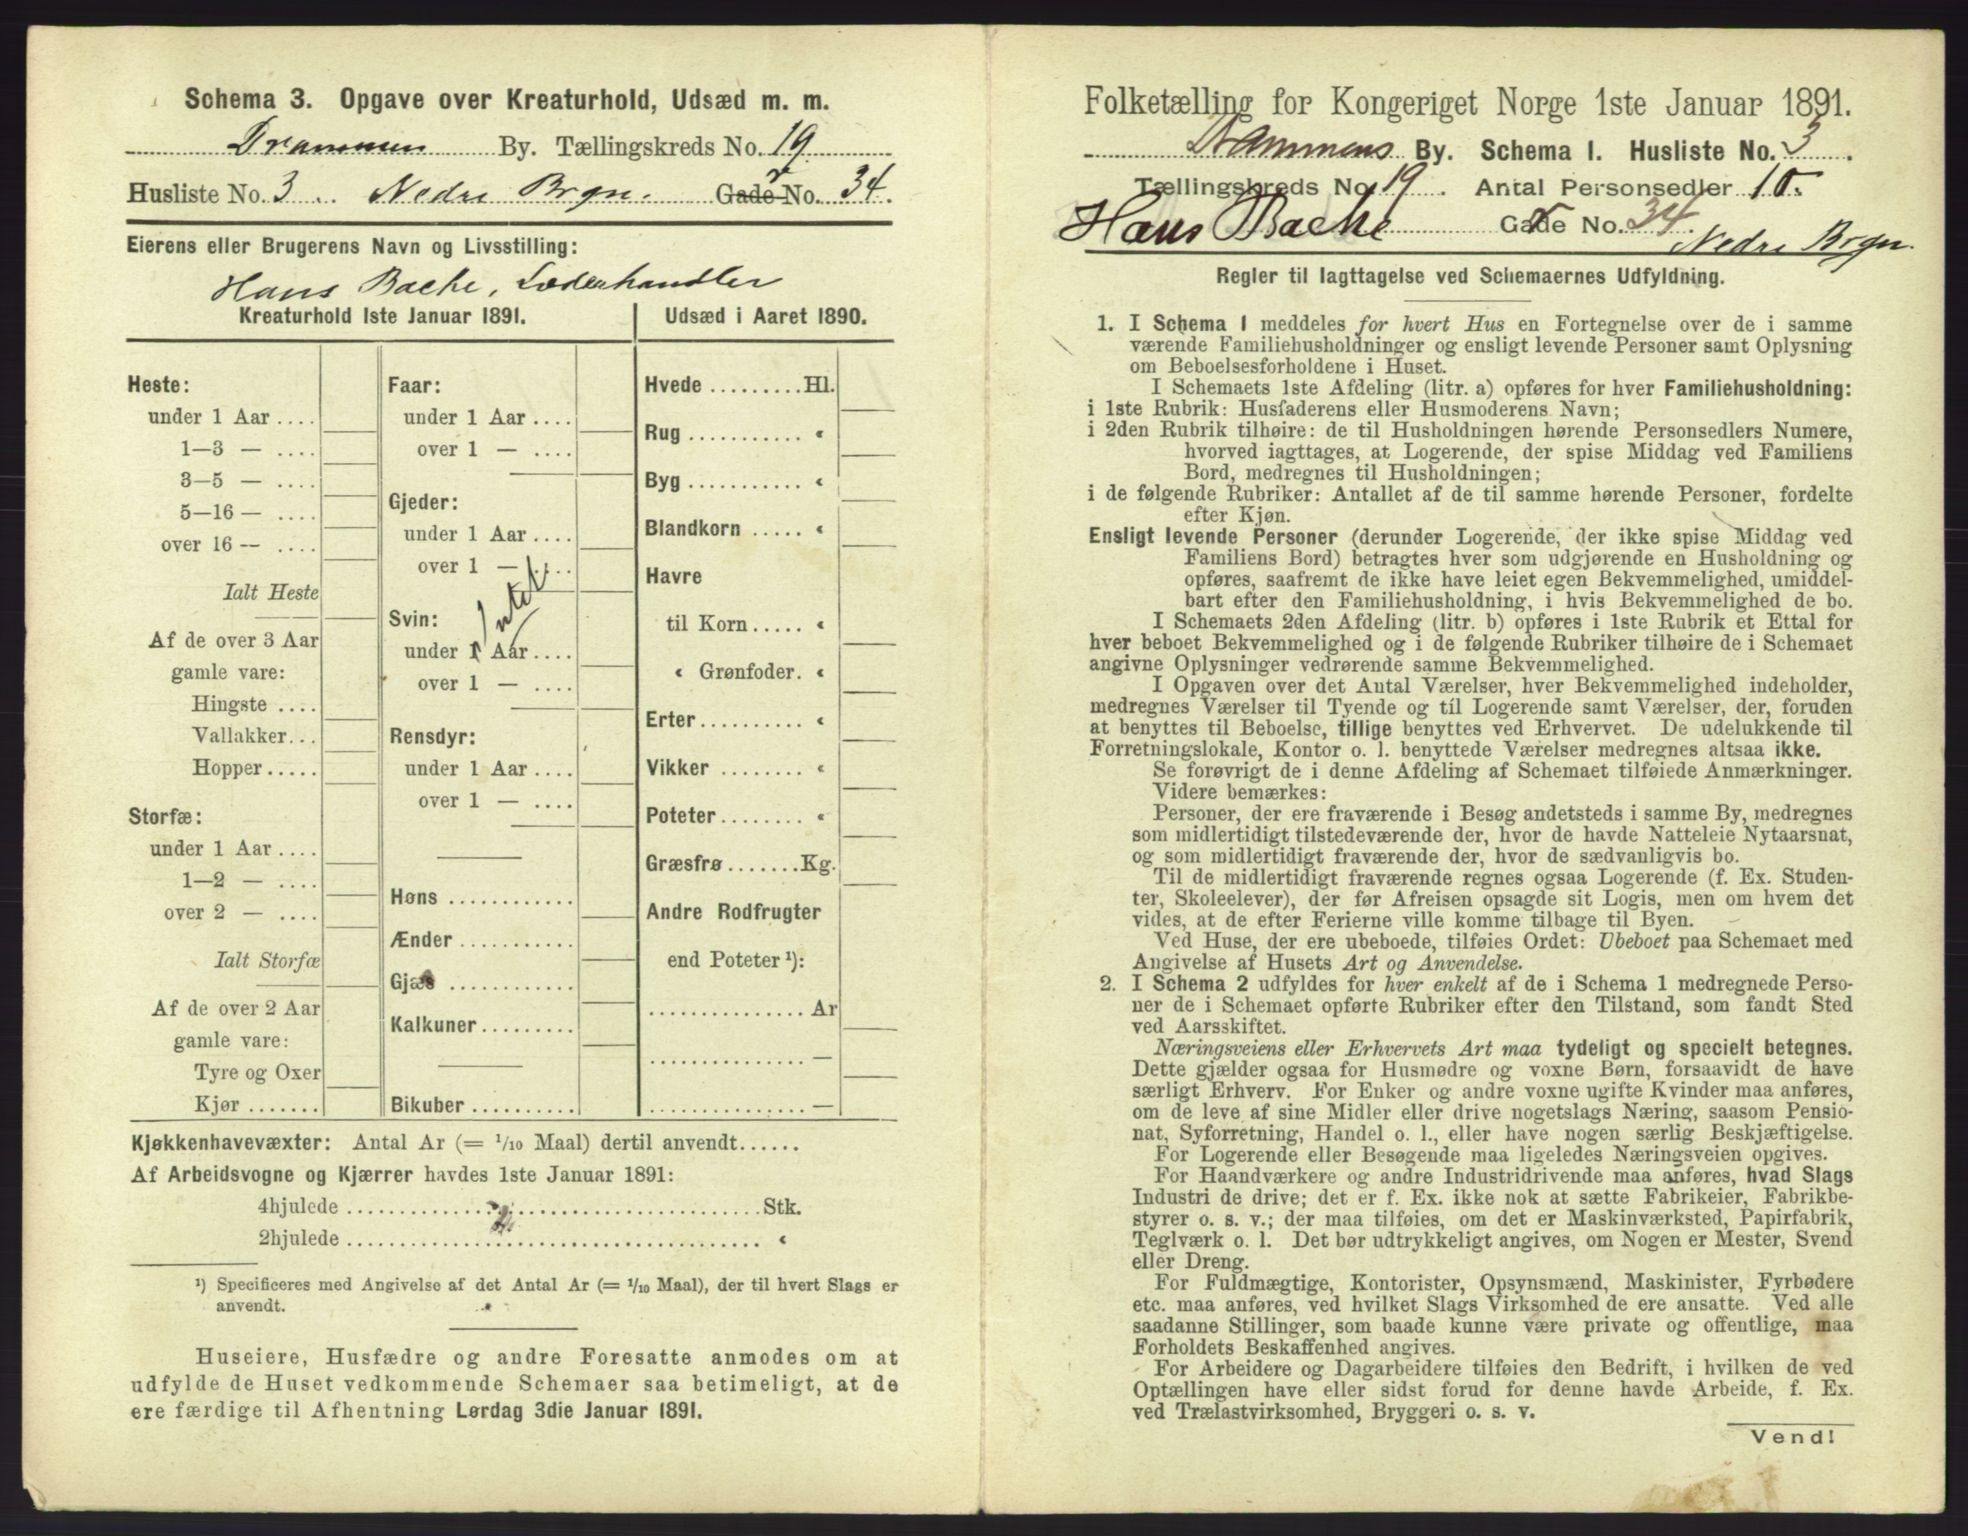 Schema 3. Opgave over Kreaturhold, Udsæd m. m.
Drammen By. Tællingskreds No. 19
Husliste No. 3 .. Nedre Brgn. Gade No. 34.
Eierens eller Brugerens Navn og Livsstilling:
Hans Bache, Læderhandler
Kreaturhold 1ste Januar 1891.
Udsæd i Aaret 1890.
Heste:
under 1 Aar ....
1—3 — ....
3—5 — ....
5—16 — ....
over 16 — ....
Ialt Heste
Af de over 3 Aar
gamle vare:
Hingste ....
Vallakker...
Hopper.....
Storfæ:
under 1 Aar ....
1—2 — ....
over 2 — ....
Ialt Storfæ
Af de over 2 Aar
gamle vare:
Tyre og Oxer
Kjør .......
Faar:
under 1 Aar ....
over 1 — ....
Gjeder:
under 1 Aar ....
over 1 — ....
Intet
Svin:
under 1 Aar ....
over 1 — ....
Rensdyr:
under 1 Aar ....
over 1 — ....
Høns ............
Ænder ...........
Gjæs ............
Kalkuner.........
Bikuber ..........
Hvede .........Hl.
Rug ........... «
Byg ........... «
Blandkorn ..... «
Havre
til Korn ..... «
« Grønfoder. «
Erter.......... «
Vikker ........ «
Poteter........ «
Græsfrø .......Kg.
Andre Rodfrugter
end Poteter ¹):
............... Ar
............... —
............... —
Kjøkkenhavevæxter: Antal Ar (= 1/10 Maal) dertil anvendt......
Af Arbeidsvogne og Kjærrer havdes 1ste Januar 1891:
4hjulede ........................................Stk.
2hjulede ........................................ «
¹) Specificeres med Angivelse af det Antal Ar (= 1/10 Maal), der til hvert Slags er
anvendt.
Huseiere, Husfædre og andre Foresatte anmodes om at
udfylde de Huset vedkommende Schemaer saa betimeligt, at de
ere færdige til Afhentning Lørdag 3die Januar 1891.
Folketælling for Kongeriget Norge 1ste Januar 1891.
Drammens By. Schema 1. Husliste No. 3.
Tællingskreds No. 19. Antal Personsedler 10.
Hans Bache Gade No. 34. Nedre Brgn.
Regler til Iagttagelse ved Schemaernes Udfyldning.
1. I Schema 1 meddeles for hvert Hus en Fortegnelse over de i samme
værende Familiehusholdninger og ensligt levende Personer samt Oplysning
om Beboelsesforholdene i Huset.
I Schemaets 1ste Afdeling (litr. a) opføres for hver Familiehusholdning:
i 1ste Rubrik: Husfaderens eller Husmoderens Navn;
i 2den Rubrik tilhøire: de til Husholdningen hørende Personsedlers Numere,
hvorved iagttages, at Logerende, der spise Middag ved Familiens
Bord, medregnes til Husholdningen;
i de følgende Rubriker: Antallet af de til samme hørende Personer, fordelte
efter Kjøn.
Ensligt levende Personer (derunder Logerende, der ikke spise Middag ved
Familiens Bord) betragtes hver som udgjørende en Husholdning og
opføres, saafremt de ikke have leiet egen Bekvemmelighed, umiddel-
bart efter den Familiehusholdning, i hvis Bekvemmelighed de bo.
I Schemaets 2den Afdeling (litr. b) opføres i 1ste Rubrik et Ettal for
hver beboet Bekvemmelighed og i de følgende Rubriker tilhøire de i Schemaet
angivne Oplysninger vedrørende samme Bekvemmelighed.
I Opgaven over det Antal Værelser, hver Bekvemmelighed indeholder,
medregnes Værelser til Tyende og til Logerende samt Værelser, der, foruden
at benyttes til Beboelse, tillige benyttes ved Erhvervet. De udelukkende til
Forretningslokale, Kontor o. l. benyttede Værelser medregnes altsaa ikke.
Se forøvrigt de i denne Afdeling af Schemaet tilføiede Anmærkninger.
Videre bemærkes:
Personer, der ere fraværende i Besøg andetsteds i samme By, medregnes
som midlertidigt tilstedeværende der, hvor de havde Natteleie Nytaarsnat,
og som midlertidigt fraværende der, hvor de sædvanligvis bo.
Til de midlertidigt fraværende regnes ogsaa Logerende (f. Ex. Studen-
ter, Skoleelever), der før Afreisen opsagde sit Logis, men om hvem det
vides, at de efter Ferierne ville komme tilbage til Byen.
Ved Huse, der ere ubeboede, tilføies Ordet: Ubeboet paa Schemaet med
Angivelse af Husets Art og Anvendelse.
2. I Schema 2 udfyldes for hver enkelt af de i Schema 1 medregnede Perso-
ner de i Schemaet opførte Rubriker efter den Tilstand, som fandt Sted
ved Aarsskiftet.
Næringsveiens eller Erhvervets Art maa tydeligt og specielt betegnes.
Dette gjælder ogsaa for Husmødre og voxne Børn, forsaavidt de have
særligt Erhverv. For Enker og andre voxne ugifte Kvinder maa anføres,
om de leve af sine Midler eller drive nogetslags Næring, saasom Pensio-
nat, Syforretning, Handel o. l., eller have nogen særlig Beskjæftigelse.
For Logerende eller Besøgende maa ligeledes Næringsveien opgives.
For Haandværkere og andre Industridrivende maa anføres, hvad Slags
Industri de drive; det er f. Ex. ikke nok at sætte Fabrikeier, Fabrikbe-
styrer o. s. v.; der maa tilføies, om det er Maskinværksted, Papirfabrik,
Teglværk o. l. Det bør udtrykkeligt angives, om Nogen er Mester, Svend
eller Dreng.
For Fuldmægtige, Kontorister, Opsynsmænd, Maskinister, Fyrbødere
etc. maa anføres, ved hvilket Slags Virksomhed de ere ansatte. Ved alle
saadanne Stillinger, som baade kunne være private og offentlige, maa
Forholdets Beskaffenhed angives.
For Arbeidere og Dagarbeidere tilføies den Bedrift, i hvilken de ved
Optællingen have eller sidst forud for denne havde Arbeide, f. Ex.
ved Trælastvirksomhed, Bryggeri o. s. v.
Vend!